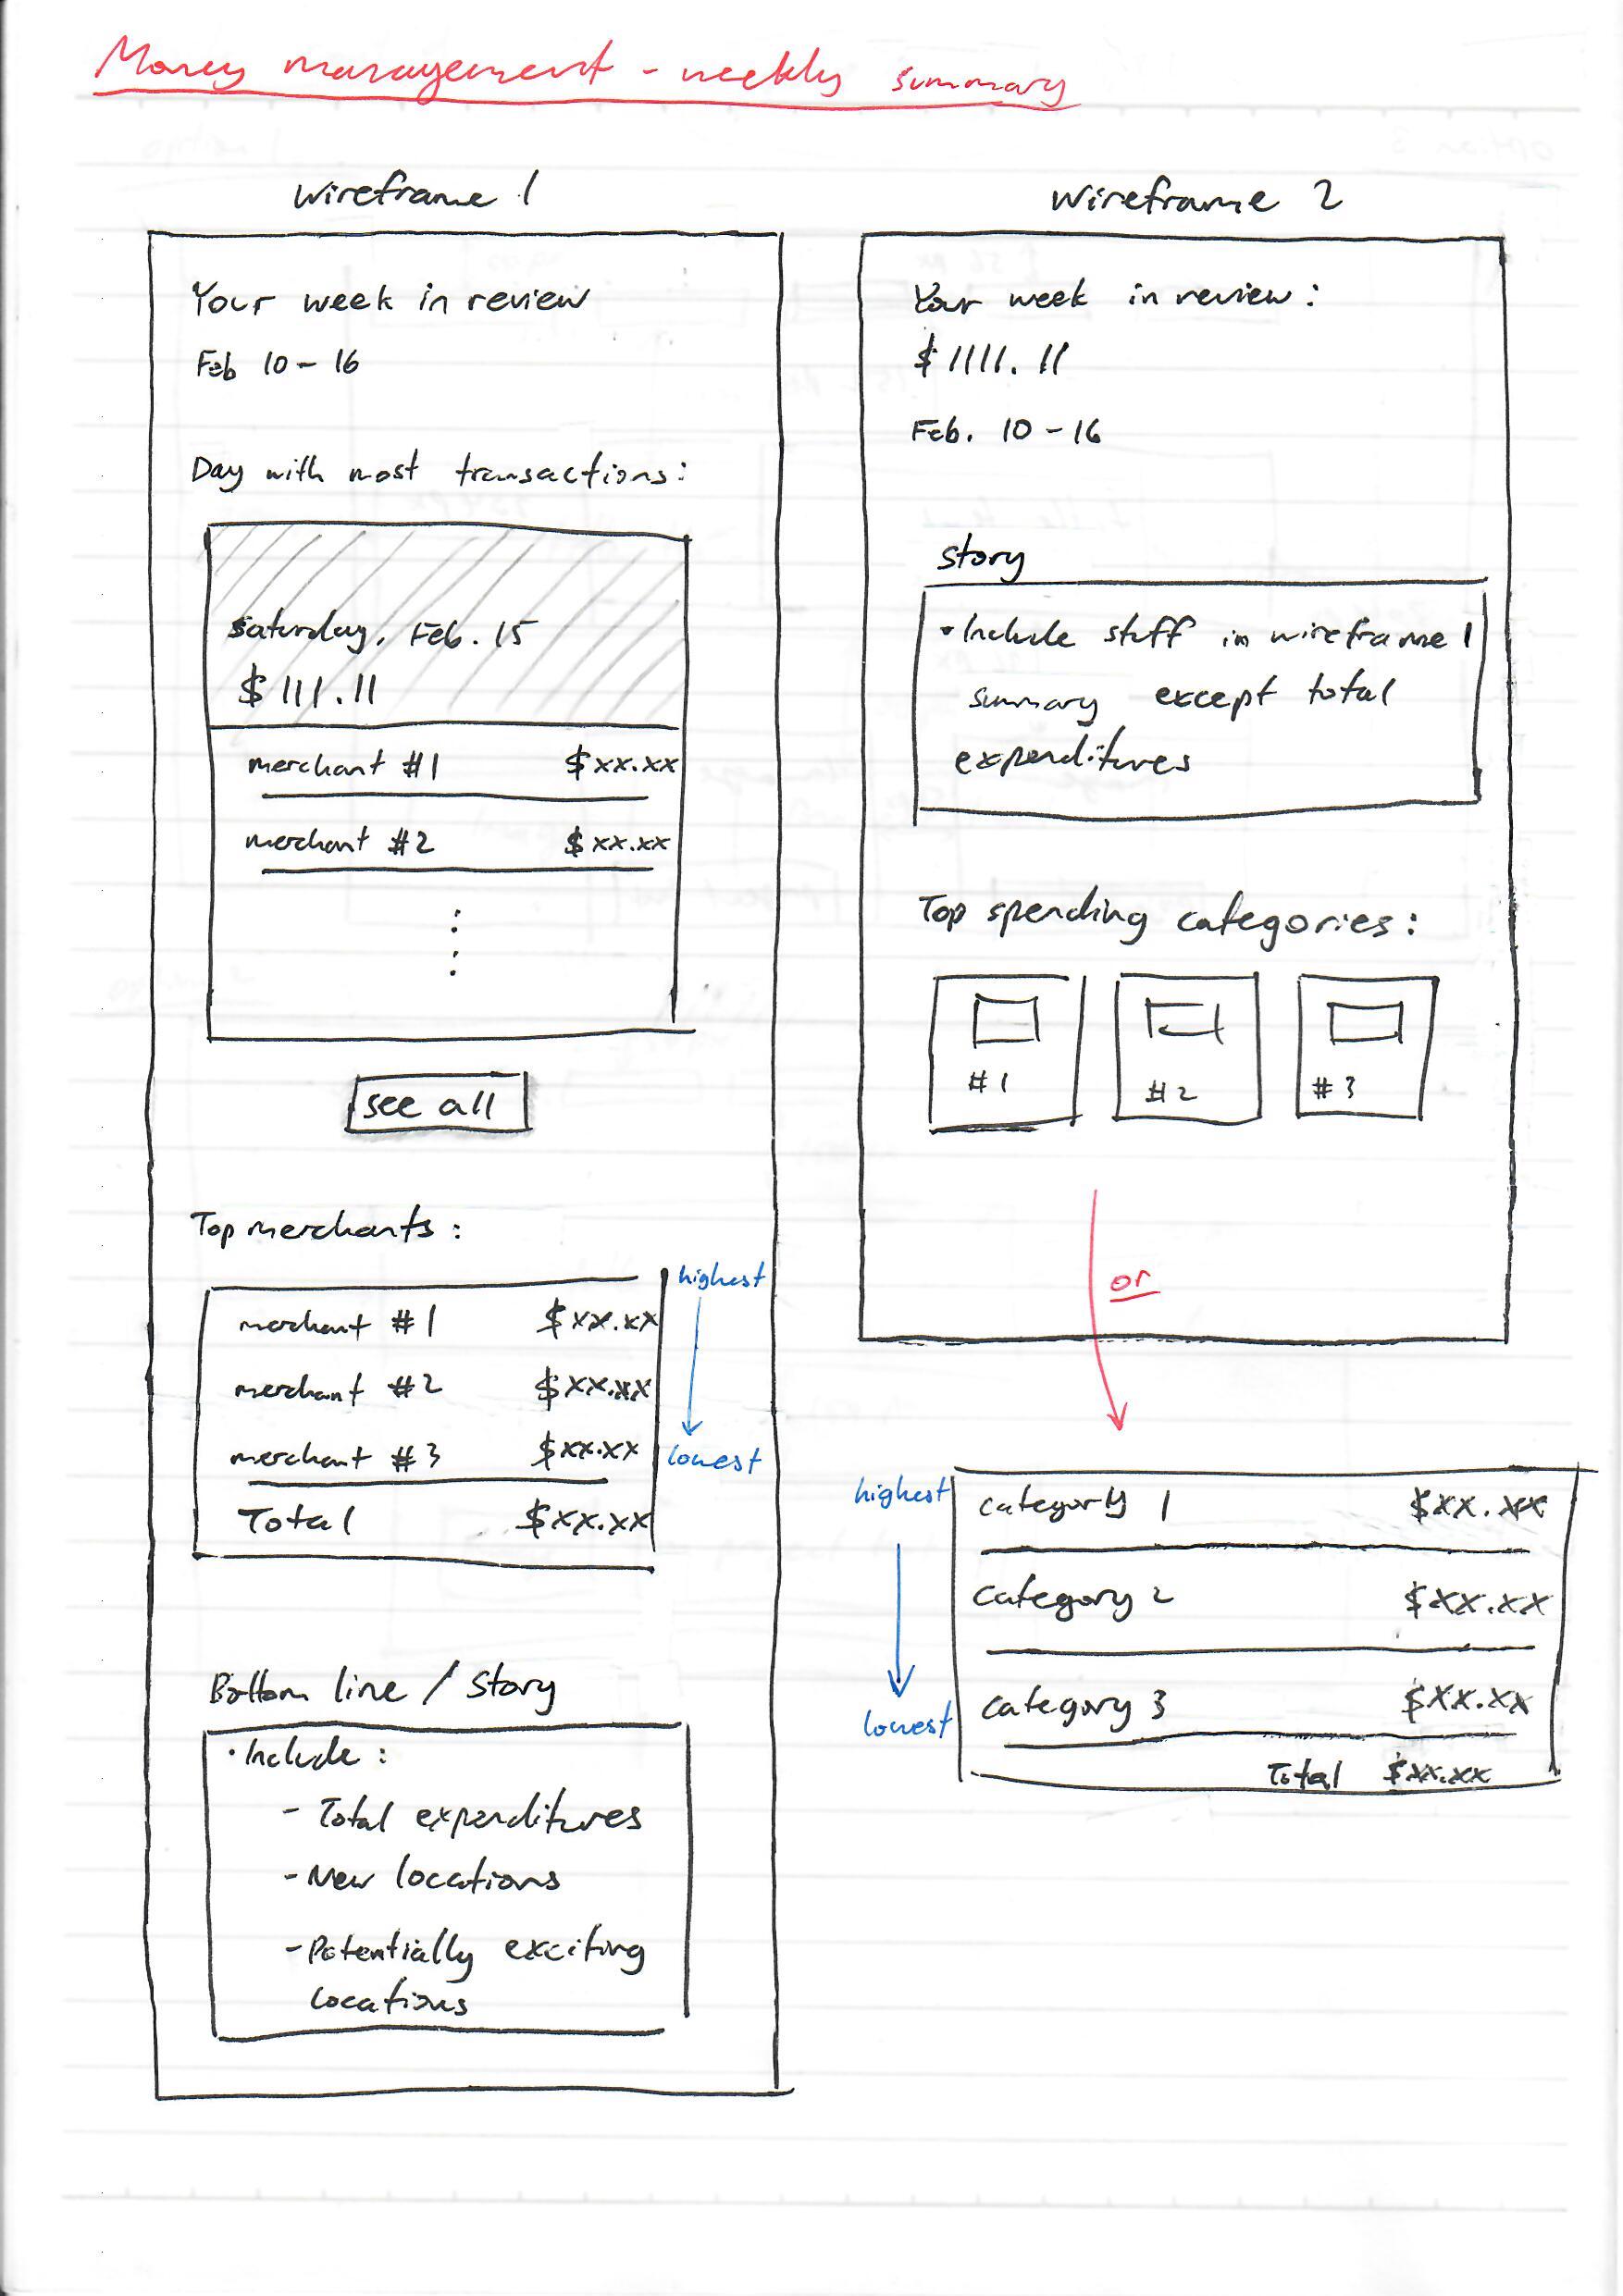 Money management - weekly summary
Wireframe 1
Your week in review
Feb 10 - 16
Day with most transactions:
Saturday, Feb. 15
$ 111.11
merchant #1 $xx.xx
merchant #2 $xx.xx
see all
Top merchants:
merchant #1 $xx.xx
merchant #2 $xx.xx
merchant #3 $xx.xx
Total $xx.xx
highest
lowest
Bottom line / Story
• Include:
- Total expenditures
- New locations
- Potentially exciting
locations
Wireframe 2
Your week in review:
$ 1111.11
Feb. 10 - 16
Story
• Include stuff in wireframe 1
summary except total
expenditures
Top spending categories:
#1 #2 #3
or
highest
lowest
category 1 $xx.xx
category 2 $xx.xx
category 3 $xx.xx
Total $xx.xx